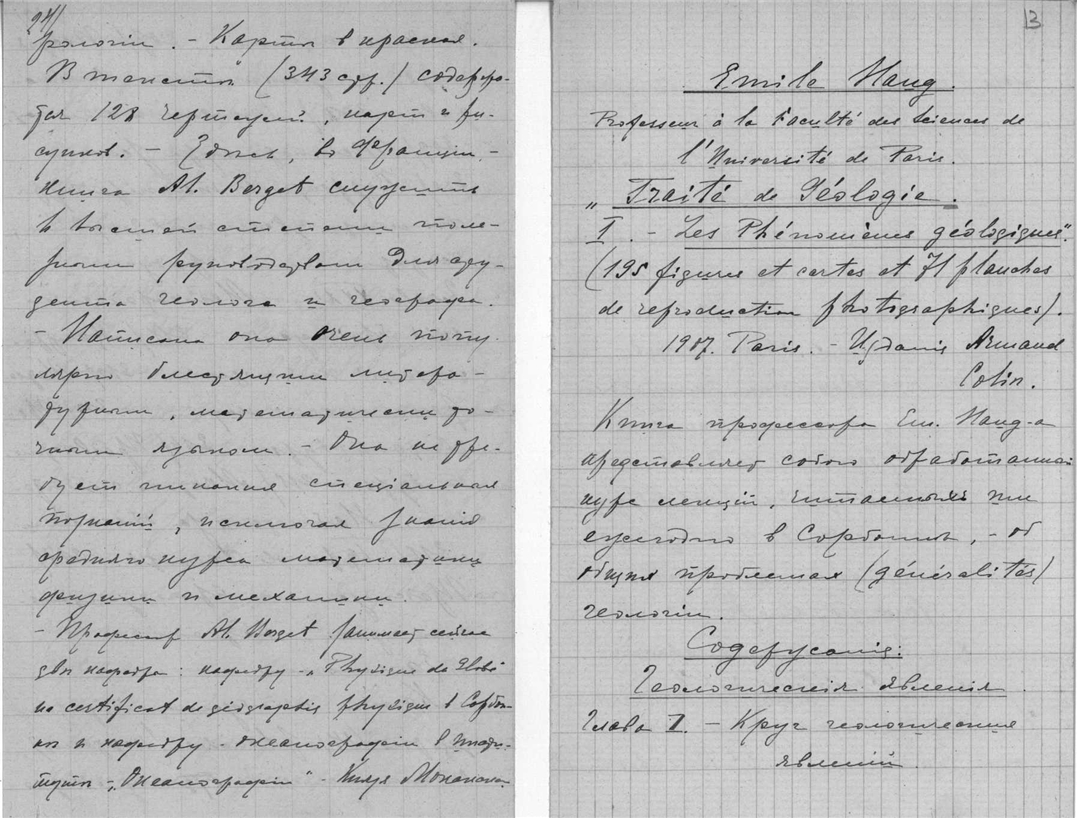 24/
рологiи. - Карты в красках.
В текстѣ (343 стр.) содержа-
тся 128 чертежей, карт и ри-
сунков. - Здѣсь, во Францiи, -
книга Al. Berget служитъ
в высшей степени поле-
зным руководством для сту-
дента геолога и географа.
- Написана она очень попу-
лярно блестящим литера-
турным, математически то-
чным языком. - Она не тре-
бует никаких спецiальных
познанiй, исключая знанiй
средняго курса математики
физики и механики.
- Профессор Al. Berget занимает сейчас
двѣ кафедры: кафедру - „Physique du Globe
на certificat de géographie physique в Сорбон-
нѣ и кафедру - океанографiи в Инсти-
тутѣ - „Океанографiи" - Князя Монакскаго
13
Emile Haug.
Professeur à la Faculté des Sciences de
l'Université de Paris.
„Traité de Géologie.
I. - Les Phénomènes géologiques".
(195 figures et cartes et 71 planches
de reproduction photographiques).
1907. Paris. - Изданiе Armand
Colin.
Книга профессора Em. Haug-а
представляет собою обработанный
курс лекцiй, читаемых им
ежегодно в Сорбоннѣ, - об
общих проблемах (généralités)
геологiи.
Содержанiе:
Геологическiя явленiя.
Глава I. - Круг геологических
явленiй.